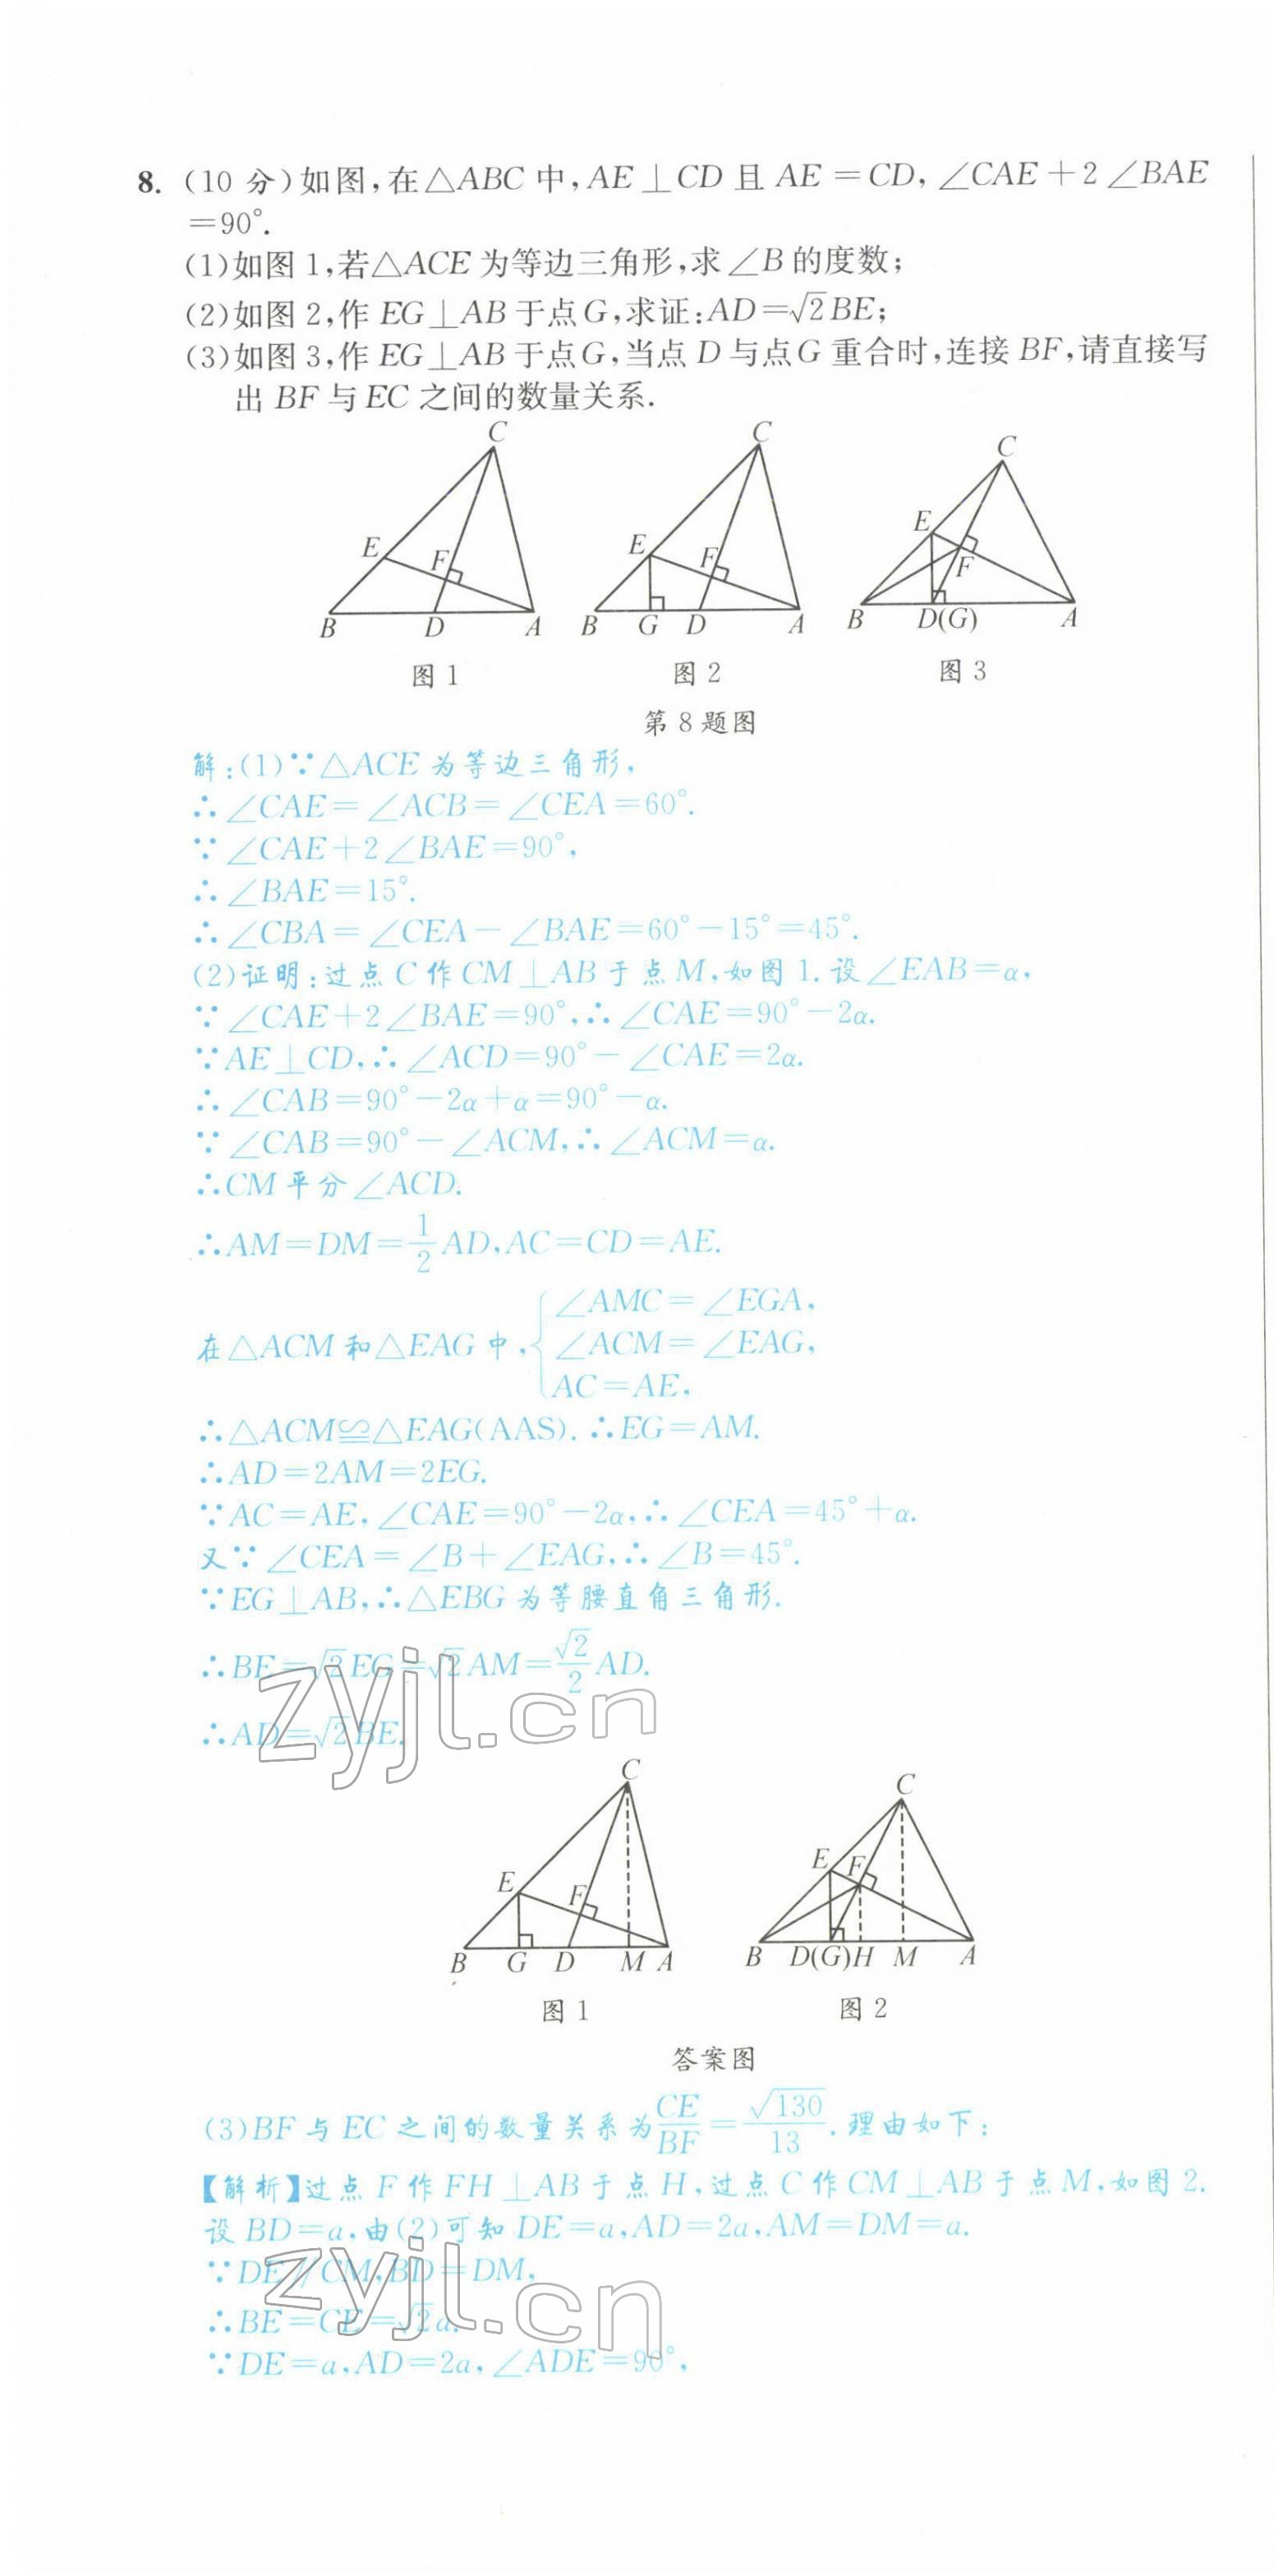 8. (10 分)如图,在△ABC 中,AE⊥CD 且 AE=CD,∠CAE+2∠BAE
=90°.
(1)如图 1,若△ACE 为等边三角形,求∠B 的度数;
(2)如图 2,作 EG⊥AB 于点 G,求证:AD=√2BE;
(3)如图 3,作 EG⊥AB 于点 G,当点 D 与点 G 重合时,连接 BF,请直接写
出 BF 与 EC 之间的数量关系.
C
E
F
B
D
A
图 1
C
E
F
B
G
D
A
图 2
C
E
F
B
D(G)
A
图 3
第 8 题图
解:(1)∵△ACE 为等边三角形,
∴∠CAE=∠ACB=∠CEA=60°.
∵∠CAE+2∠BAE=90°,
∴∠BAE=15°.
∴∠CBA=∠CEA-∠BAE=60°-15°=45°.
(2)证明:过点 C 作 CM⊥AB 于点 M,如图 1.设∠EAB=α,
∵∠CAE+2∠BAE=90°,∴∠CAE=90°-2α.
∵AE⊥CD,∴∠ACD=90°-∠CAE=2α.
∴∠CAB=90°-2α+α=90°-α.
∵∠CAB=90°-∠ACM,∴∠ACM=α.
∴CM 平分∠ACD.
∴AM=DM=1/2 AD,AC=CD=AE.
在△ACM 和△EAG 中,{∠AMC=∠EGA,
∠ACM=∠EAG,
AC=AE,
∴△ACM≌△EAG(AAS).∴EG=AM.
∴AD=2AM=2EG.
∵AC=AE,∠CAE=90°-2α,∴∠CEA=45°+α.
又∵∠CEA=∠B+∠EAG,∴∠B=45°.
∵EG⊥AB,∴△EBG 为等腰直角三角形.
∴BE=√2EG=√2AM=√2/2 AD.
∴AD=√2BE.
zyjl.cn
C
E
F
B
G
D
M
A
图 1
C
E
F
B
D(G)
H
M
A
图 2
答案图
(3)BF 与 EC 之间的数量关系为 CE/BF=√130/13.理由如下:
【解析】过点 F 作 FH⊥AB 于点 H,过点 C 作 CM⊥AB 于点 M,如图 2.
设 BD=a,由(2)可知 DE=a,AD=2a,AM=DM=a.
∵DE∥CM,BD=DM,
∴BE=CE=√2a.
∵DE=a,AD=2a,∠ADE=90°,
zyjl.cn